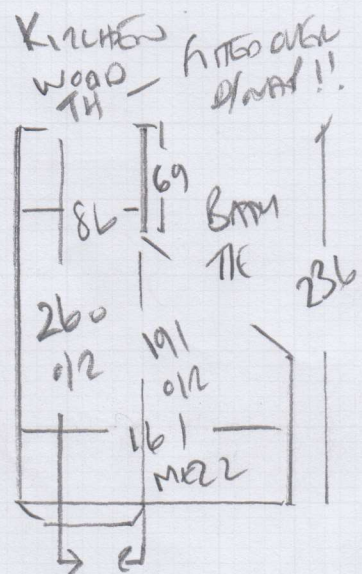 KITCHEN
WOOD
TH
FITTED OVER
69
86
BATH
TIE
236
260
O/R
191
O/R
161
MEZZ